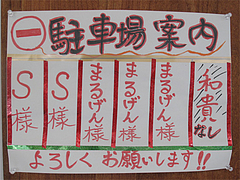 駐車場案内
和貴なし
まるげん様
まるげん様
まるげん様
S様
S様
よろしくお願いします!!